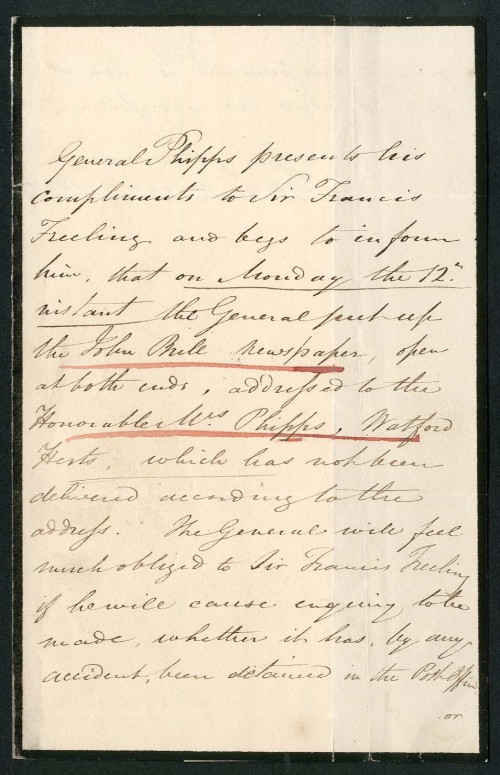 General Phipps presents his
compliments to Sir Francis
Freeling and begs to inform
him, that on Monday the 12th
instant the General put up
the John Bull newspaper, open
at both ends, addressed to the
Honorable Mrs Phipps, Watford
Herts, which has not been
delivered according to the
address. The General will feel
much obliged to Sir Francis Freeling
if he will cause enquiry to be
made, whether it has, by any
accident, been detained in the Post Office
or